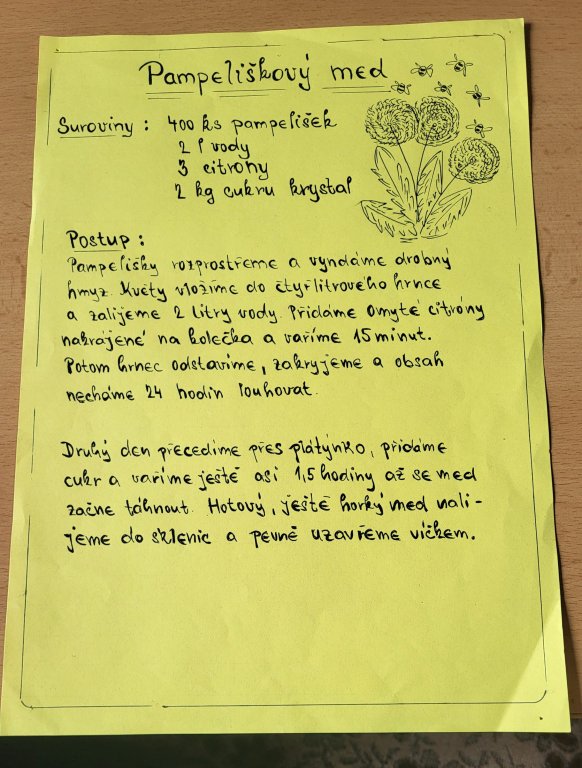 Pampeliškový med
Suroviny : 400 ks pampelišek
2 l vody
3 citrony
2 kg cukru krystal
Postup :
Pampelišky rozprostřeme a vyndáme drobný
hmyz. Květy vložíme do čtyřlitrového hrnce
a zalijeme 2 litry vody. Přidáme omyté citróny
nakrájené na kolečka a vaříme 15 minut.
Potom hrnec odstavíme, zakryjeme a obsah
necháme 24 hodin louhovat.
Druhý den přecedíme přes plátýnko, přidáme
cukr a vaříme ještě asi 1,5 hodiny až se med
začne táhnout. Hotový, ještě horký med nali-
jeme do sklenic a pevně uzavřeme víčkem.